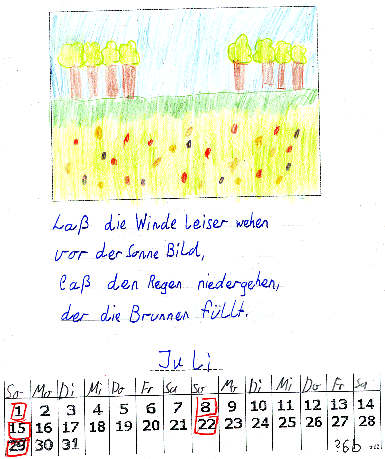 Laß die Winde leiser wehen
vor der Sonne Bild,
laß den Regen niedergehen,
der die Brunnen füllt.
Juli
So Mo Di Mi Do Fr Sa So Mo Di Mi Do Fr Sa
1 2 3 4 5 6 7 8 9 10 11 12 13 14
15 16 17 18 19 20 21 22 23 24 25 26 27 28
29 30 31